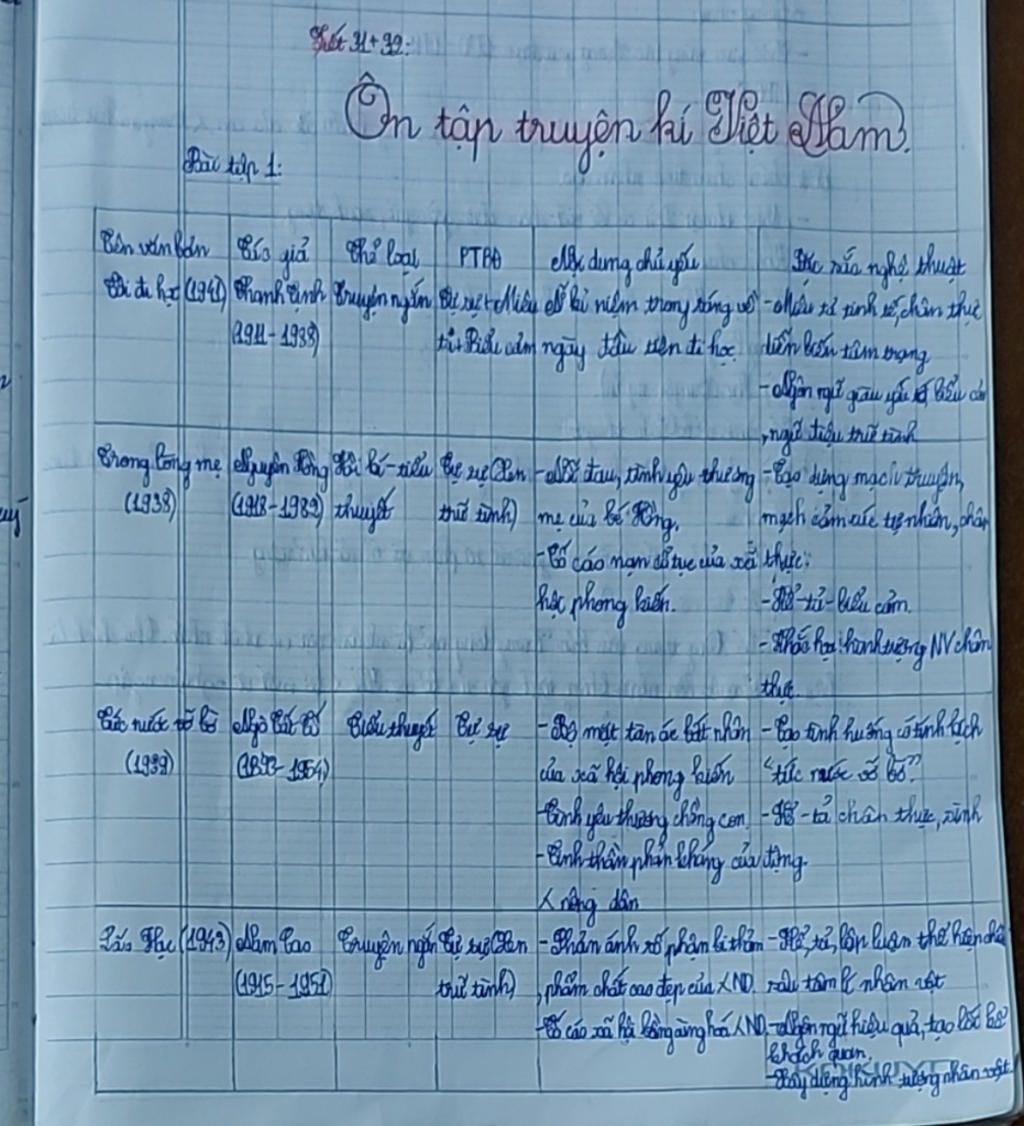 Tiết 31+32:
Ôn tập truyện kí Việt Nam.
Bài tập 1:
Tên văn bản Tác giả Thể loại PTBĐ Nội dung chủ yếu Đặc sắc nghệ thuật
Tôi đi học (1941) Thanh Tịnh Truyện ngắn Tự sự + Miêu Những kỉ niệm trong sáng về - Miêu tả tinh tế, chân thực
(1911-1988) tả + Biểu cảm ngày đầu tiên đi học. diễn biến tâm trạng
- Ngôn ngữ giàu yếu tố biểu cảm
, ngữ điệu trữ tình
Trong lòng mẹ Nguyên Hồng Hồi kí - tiểu Tự sự (Xen - Nỗi đau, tình yêu thương - Tạo dựng mạch truyện,
(1938) (1918-1982) thuyết trữ tình) mẹ của bé Hồng. mạch cảm xúc tự nhiên, chân
- Tố cáo nạn cổ tục của xã thực.
hội phong kiến. - Kể - tả - biểu cảm.
- Khắc họa hình tượng NV chân
thực.
Tức nước vỡ bờ Ngô Tất Tố Tiểu thuyết Tự sự - Bộ mặt tàn ác bất nhân - Tạo tình huống có tính kịch
(1939) (1893-1954) của xã hội phong kiến "tức nước vỡ bờ".
- Tình yêu thương chồng con. - Kể - tả chân thực, sinh
- Tinh thần phản kháng của động.
< nông dân
Lão Hạc (1943) Nam Cao Truyện ngắn Tự sự (Xen - Phản ánh số phận bi thảm - Kể, tả, bình luận thể hiện chiều
(1915-1951) trữ tình) , phẩm chất cao đẹp của <ND. sâu tâm lí nhân vật
- Tố cáo xã hội <ND. - Ngôn ngữ hiệu quả, tạo lối kể
khách quan.
- Xây dựng hình tượng nhân vật.